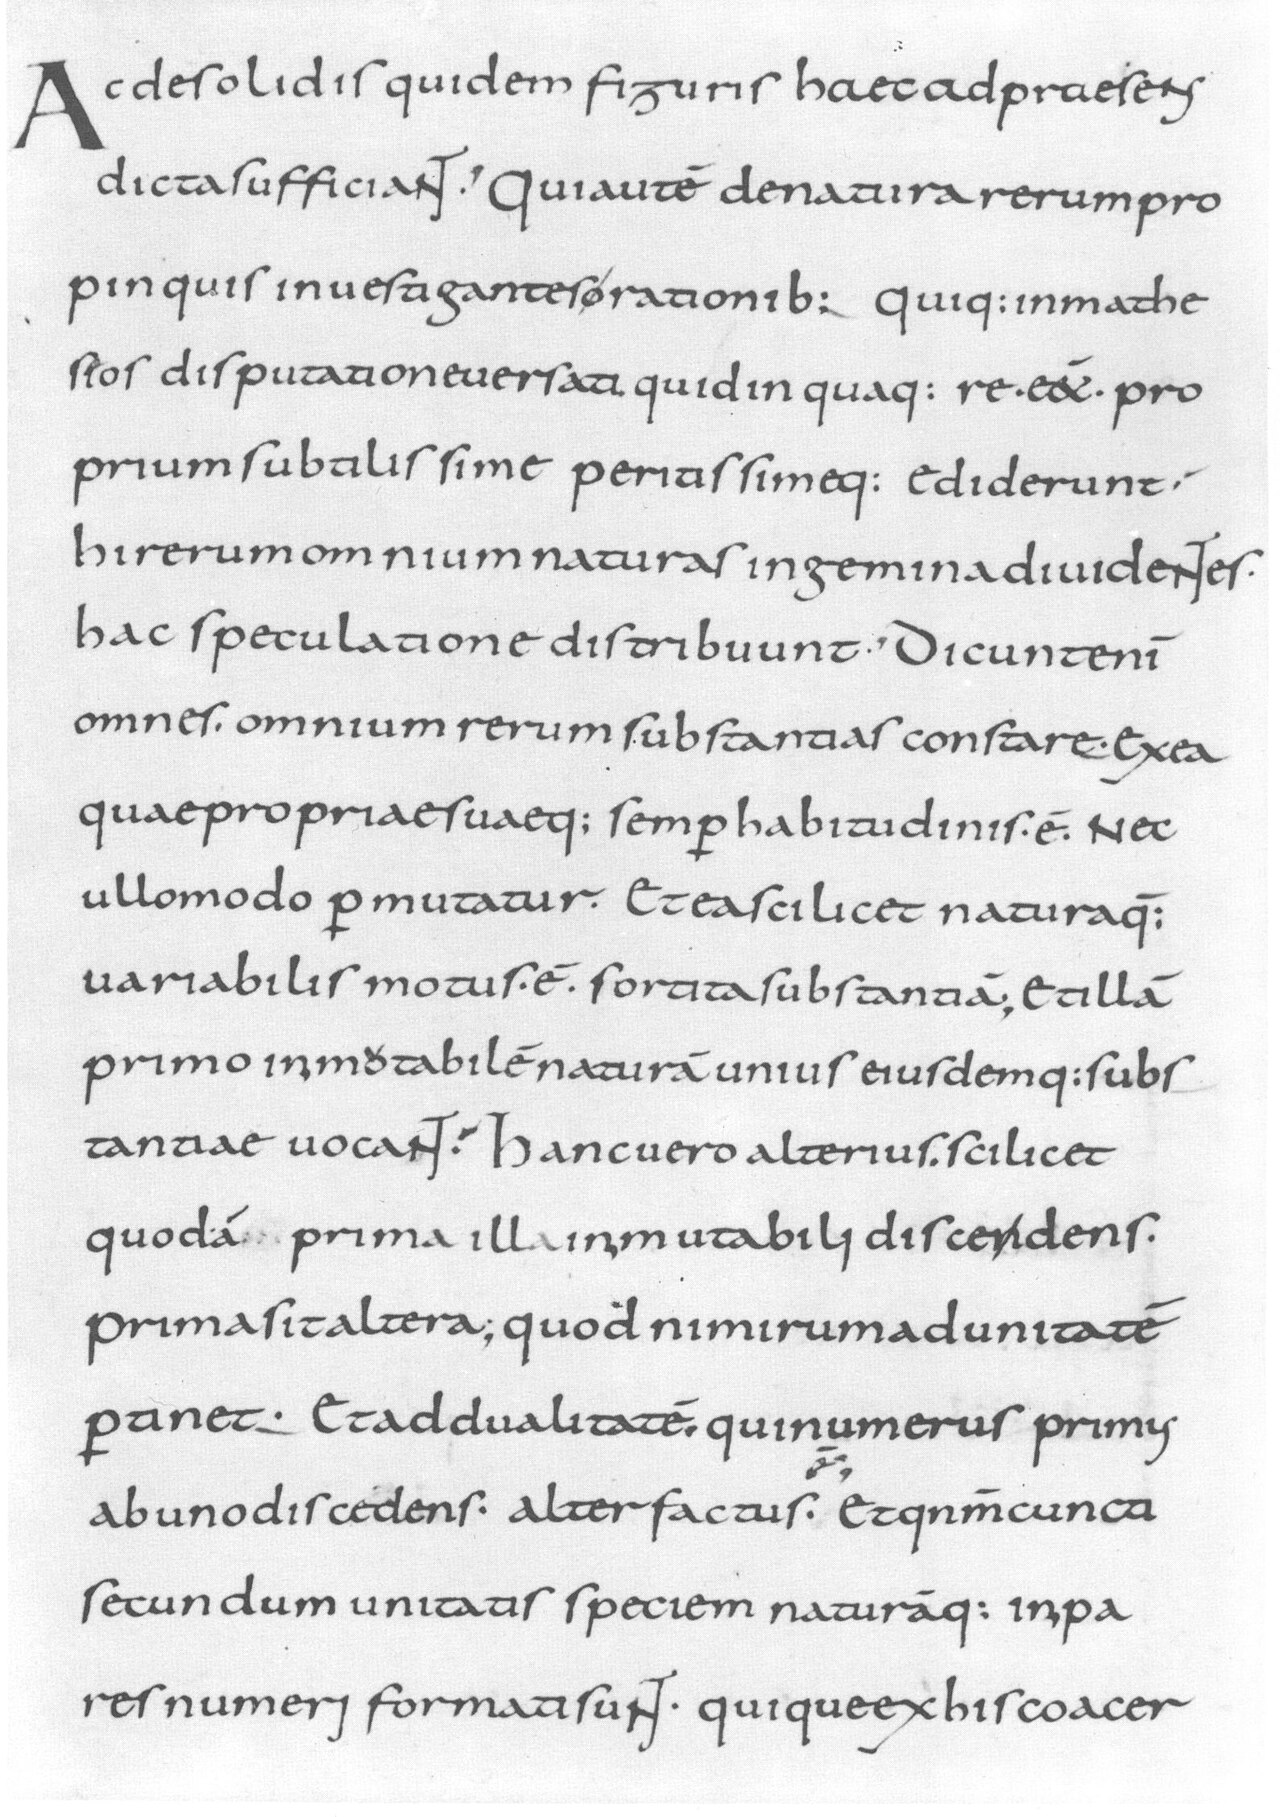 Ac de solidis quidem figuris haec ad praesens
dicta sufficiant. Qui autē de natura rerum pro
pinquis inuestigantes rationib; Quiq: in mathe
sios disputatione uersati quid in quaq: re. eēt. pro
prium subtilissime peritissimeq: ediderunt.
hi rerum omnium naturas in gemina diuidentes.
hac speculatione distribuunt. Dicunt enī
omnes. omnium rerum substantias constare. Ex ea
quae propriae suaeq; semꝑ habitudinis. ē. Nec
ullo modo ꝑmutatur. Et ea scilicet natura q̄;
uariabilis motus. ē. sortita substantiā; Et illā
primo inmutabilē naturā unius eiusdemq: subs
tantiae uocant. Hanc uero alterius. scilicet
quodā prima illa inmutabili discedens.
prima sit altera; quod nimirum ad unitatē
ꝑtinet. Et ad dualitatē. qui numerus primus
ab uno discedens. alter factus. Et qnm̄ cuncti
secundum unitatis speciem naturāq: inpa
res numeri formati sunt. quique ex his coacer